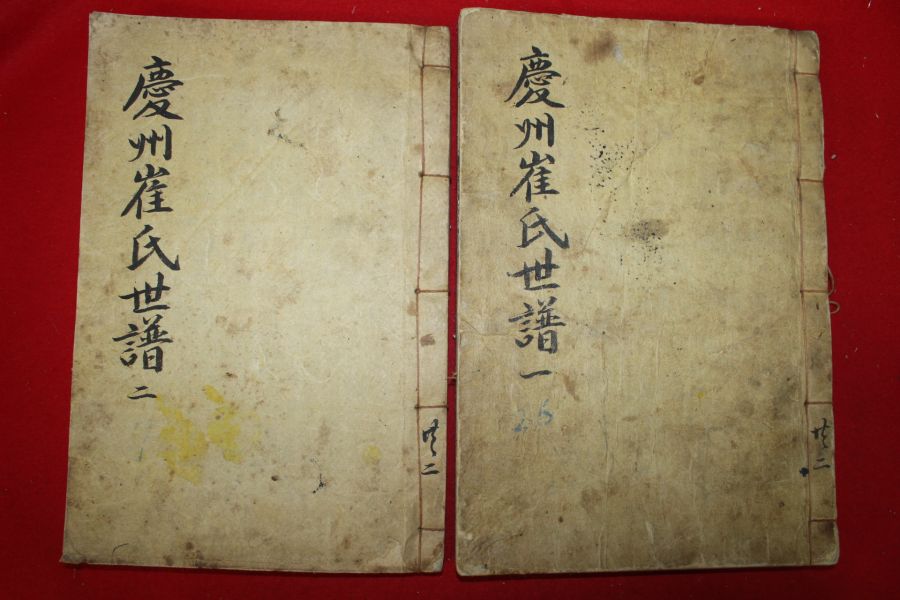 慶州崔氏世譜 一
26
共二
慶州崔氏世譜 二
共二